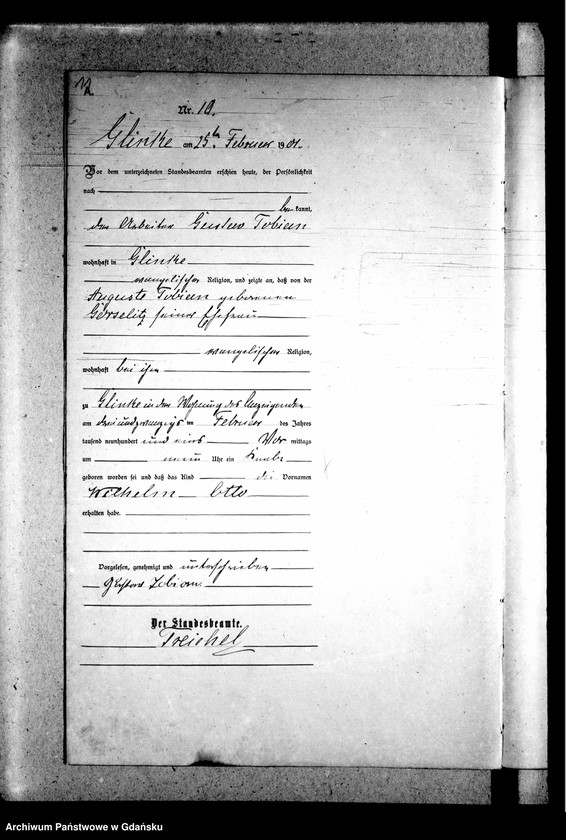 Nr. 10.
Glinke am 25ten Februar 1901.
Vor dem unterzeichneten Standesbeamten erschien heute, der Persönlichkeit
nach
be kannt,
der Arbeiter Gustav Tobian
wohnhaft in Glinke
evangelischer Religion, und zeigte an, daß von der
Auguste Tobian geborenen
seiner Ehefrau
evangelischer Religion,
wohnhaft bei ihm
zu Glinke in der Wohnung des Anzeigenden
am dreiundzwanzigsten Februar des Jahres
tausend neunhundert und eins Vor mittags
um neun Uhr ein Knabe
geboren worden sei und daß das Kind die Vornamen
Wilhelm Otto
erhalten habe.
Vorgelesen, genehmigt und unterschrieben
Tobian
Der Standesbeamte.
Treichel
Archiwum Państwowe w Gdańsku